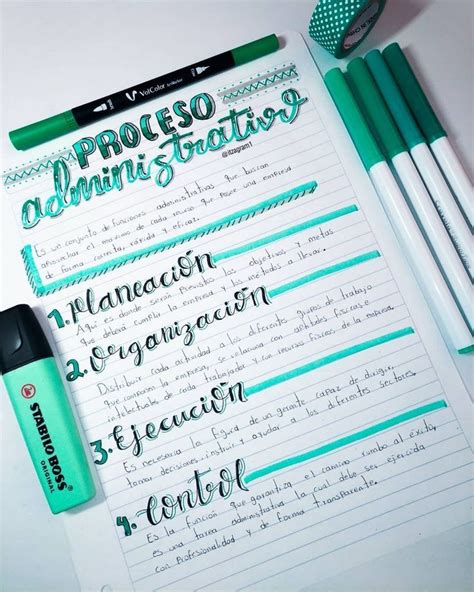 VolColor
PROCESO
administrativo
@itzagram1
Es un conjunto de funciones administrativas que buscan
aprovechar al máximo de cada recurso que posee una empresa
de forma correcta, rápida y eficaz.
1. Planeación
Aquí es donde serán previstos los objetivos, y metas
que deberá cumplir la empresa y los métodos a llevar.
2. Organización
Distribuir cada actividad a los diferentes grupos de trabajo
que componen la empresa, se relaciona con aptitudes físicas e
intelectuales de cada trabajador y con recursos físicos de la empresa.
3. Ejecución
Es necesaria la figura de un gerente capaz de dirigir,
tomar decisiones, instruir y ayudar a los diferentes sectores.
4. Control
Es la función que garantiza el camino rumbo al éxito,
es una tarea administrativa la cual debe ser ejercida
con Profesionalidad y de forma transparente.
STABILO BOSS